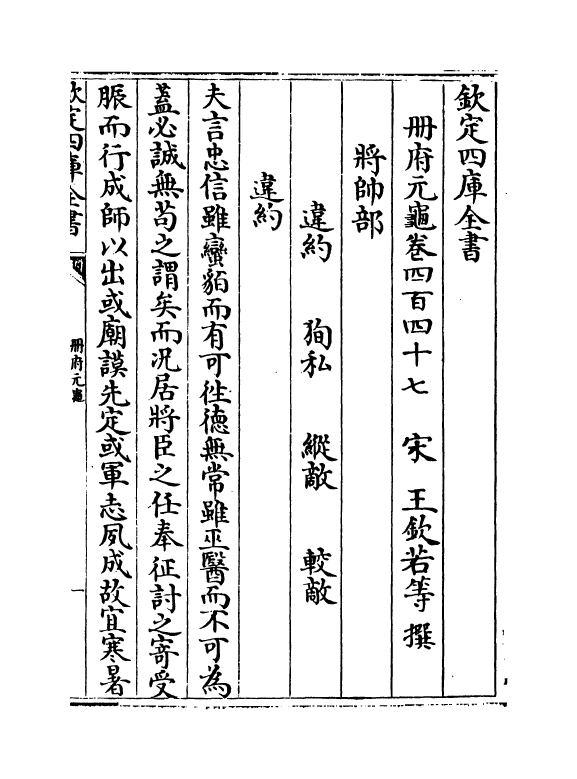 欽定四庫全書
冊府元龜卷四百四十七　宋　王欽若等　撰
將帥部
違約　狥私　縱敵　較敵
違約
夫言忠信雖蠻貊而有可徃德無常雖巫醫而不可為
蓋必誠無茍之謂矣而况居將臣之任奉征討之寄受
脤而行成師以出或廟謨先定或軍志夙成故宜寒暑
欽定四庫全書
冊府元龜
一